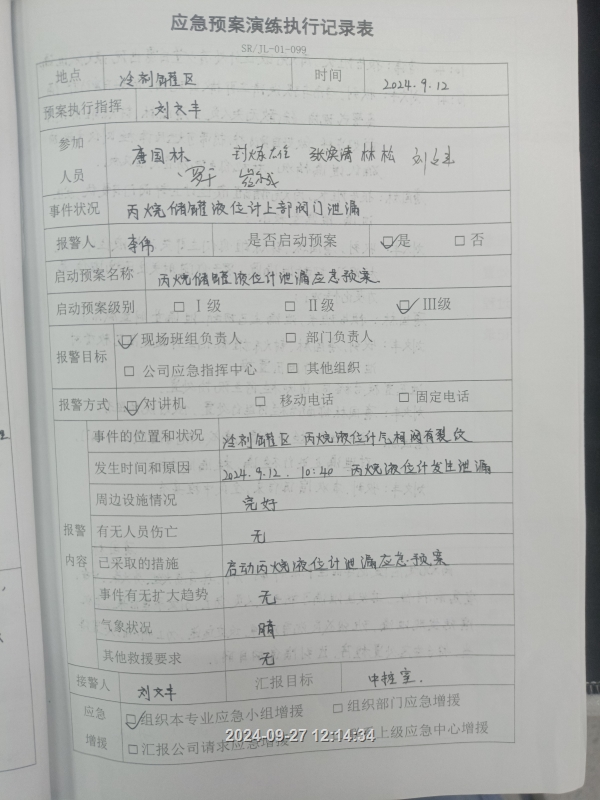 应急预案演练执行记录表
SR/JL-01-099
地点 冷剂罐区 时间 2024.9.12
预案执行指挥 刘文丰
参加 唐国林 林松
人员
事件状况 丙烷储罐液位计上部阀门泄漏
报警人 李伟 是否启动预案 ☑是 □否
启动预案名称 丙烷储罐液位计泄漏应急预案
启动预案级别 □Ⅰ级 □Ⅱ级 ☑Ⅲ级
☑现场班组负责人 □部门负责人
报警目标
□公司应急指挥中心 □其他组织
报警方式 ☑对讲机 □移动电话 □固定电话
事件的位置和状况 冷剂罐区 丙烷液位计气相阀有裂纹
发生时间和原因 2024.9.12. 10:40 丙烷液位计发生泄漏
周边设施情况 完好
报警 有无人员伤亡 无
内容 已采取的措施 启动丙烷液位计泄漏应急预案
事件有无扩大趋势 无
气象状况 晴
其他救援要求 无
接警人 刘文丰 汇报目标 中控室.
应急 ☑组织本专业应急小组增援 □组织部门应急增援
增援 □汇报公司请求应急增援 上级应急中心增援
2024-09-27 12:14:34